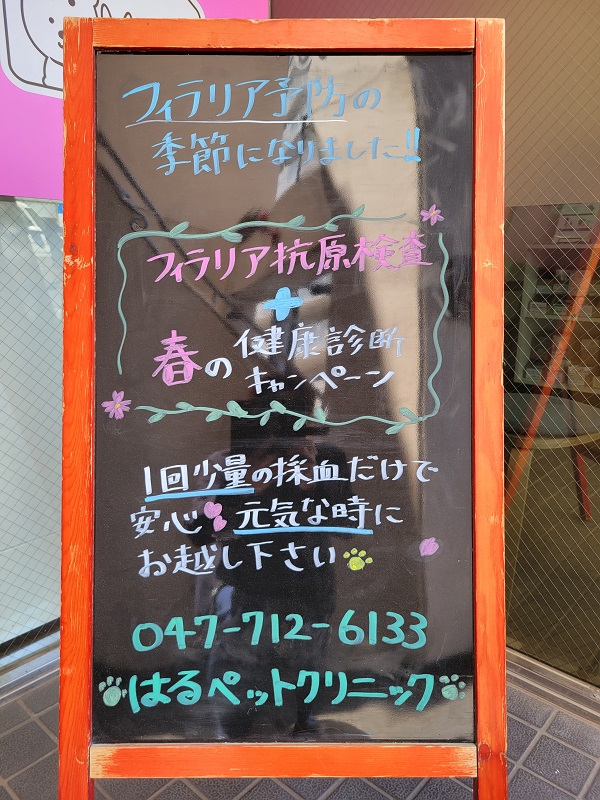 フィラリア予防の
季節になりました!!
フィラリア抗原検査
+
春の健康診断
キャンペーン
1回少量の採血だけで
安心 元気な時に
お越し下さい
047-712-6133
はるペットクリニック